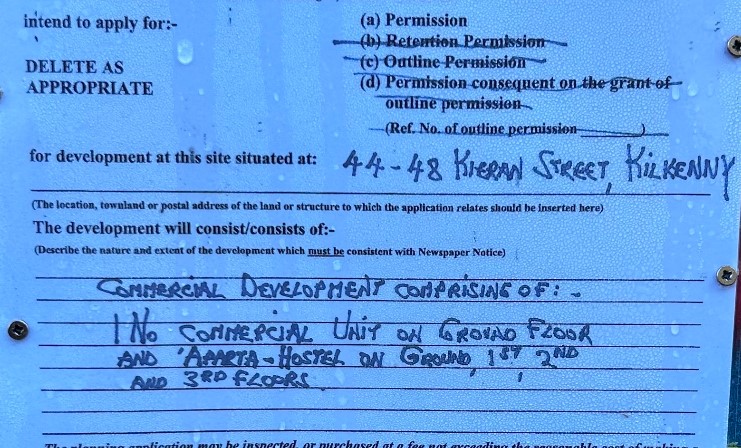 intend to apply for:- (a) Permission
(b) Retention Permission
(c) Outline Permission
DELETE AS
APPROPRIATE (d) Permission consequent on the grant of
outline permission
(Ref. No. of outline permission )
for development at this site situated at: 44-48 KIERAN STREET, KILKENNY
(The location, townland or postal address of the land or structure to which the application relates should be inserted here)
The development will consist/consists of:-
(Describe the nature and extent of the development which must be consistent with Newspaper Notice)
COMMERCIAL DEVELOPMENT COMPRISING OF:-
1 No COMMERCIAL UNIT ON GROUND FLOOR
AND 'APARTA-HOSTEL ON GROUND, 1ST, 2ND
AND 3RD FLOORS
The planning application may be inspected, or purchased at a fee not exceeding the reasonable cost of making